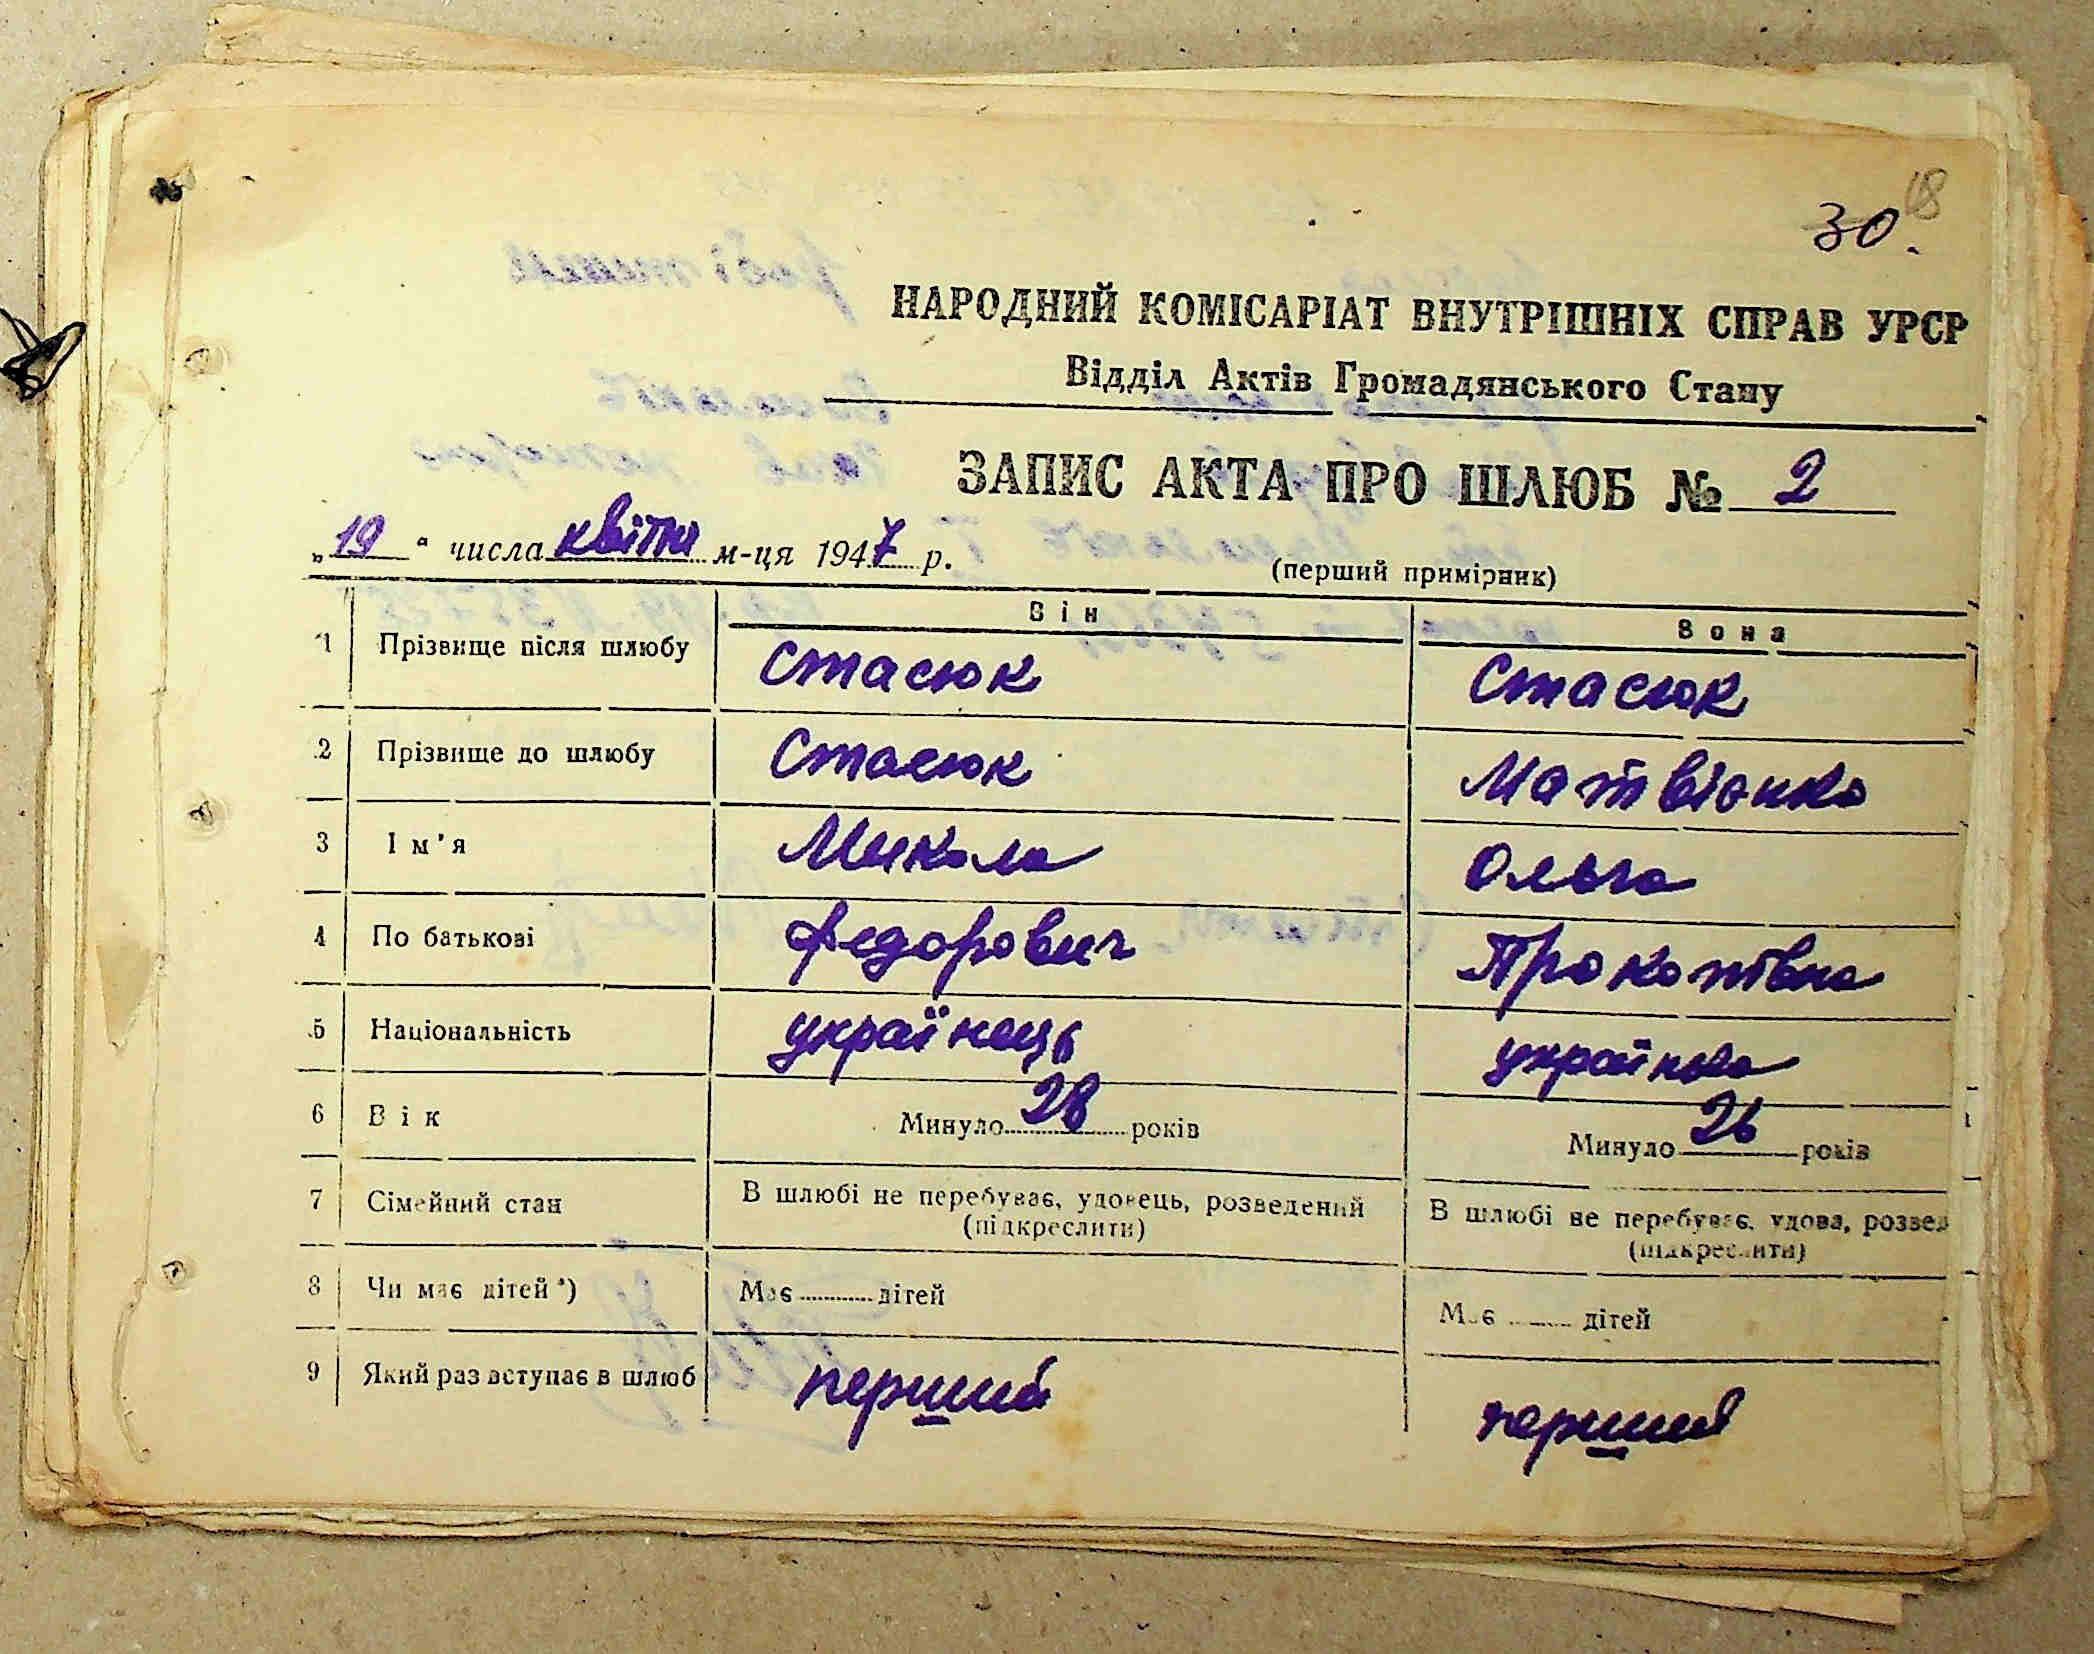 18
30.
НАРОДНИЙ КОМІСАРІАТ ВНУТРІШНІХ СПРАВ УРСР
Відділ Актів Громадянського Стану
ЗАПИС АКТА ПРО ШЛЮБ № 2
„19“ числа квітня м-ця 1947 р.
(перший примірник)
Він Вона
1 Прізвище після шлюбу Стасюк Стасюк
2 Прізвище до шлюбу Стасюк Матвієнко
3 Ім'я Микола Ольга
4 По батькові Федорович Прокопівна
5 Національність українець українка
6 Вік Минуло 28 років Минуло 26 років
7 Сімейний стан В шлюбі не перебуває, удовець, розведений В шлюбі не перебуває, удова, розвед
(підкреслити) (підкреслити)
8 Чи має дітей*) Має дітей Має дітей
9 Який раз вступає в шлюб перший перший